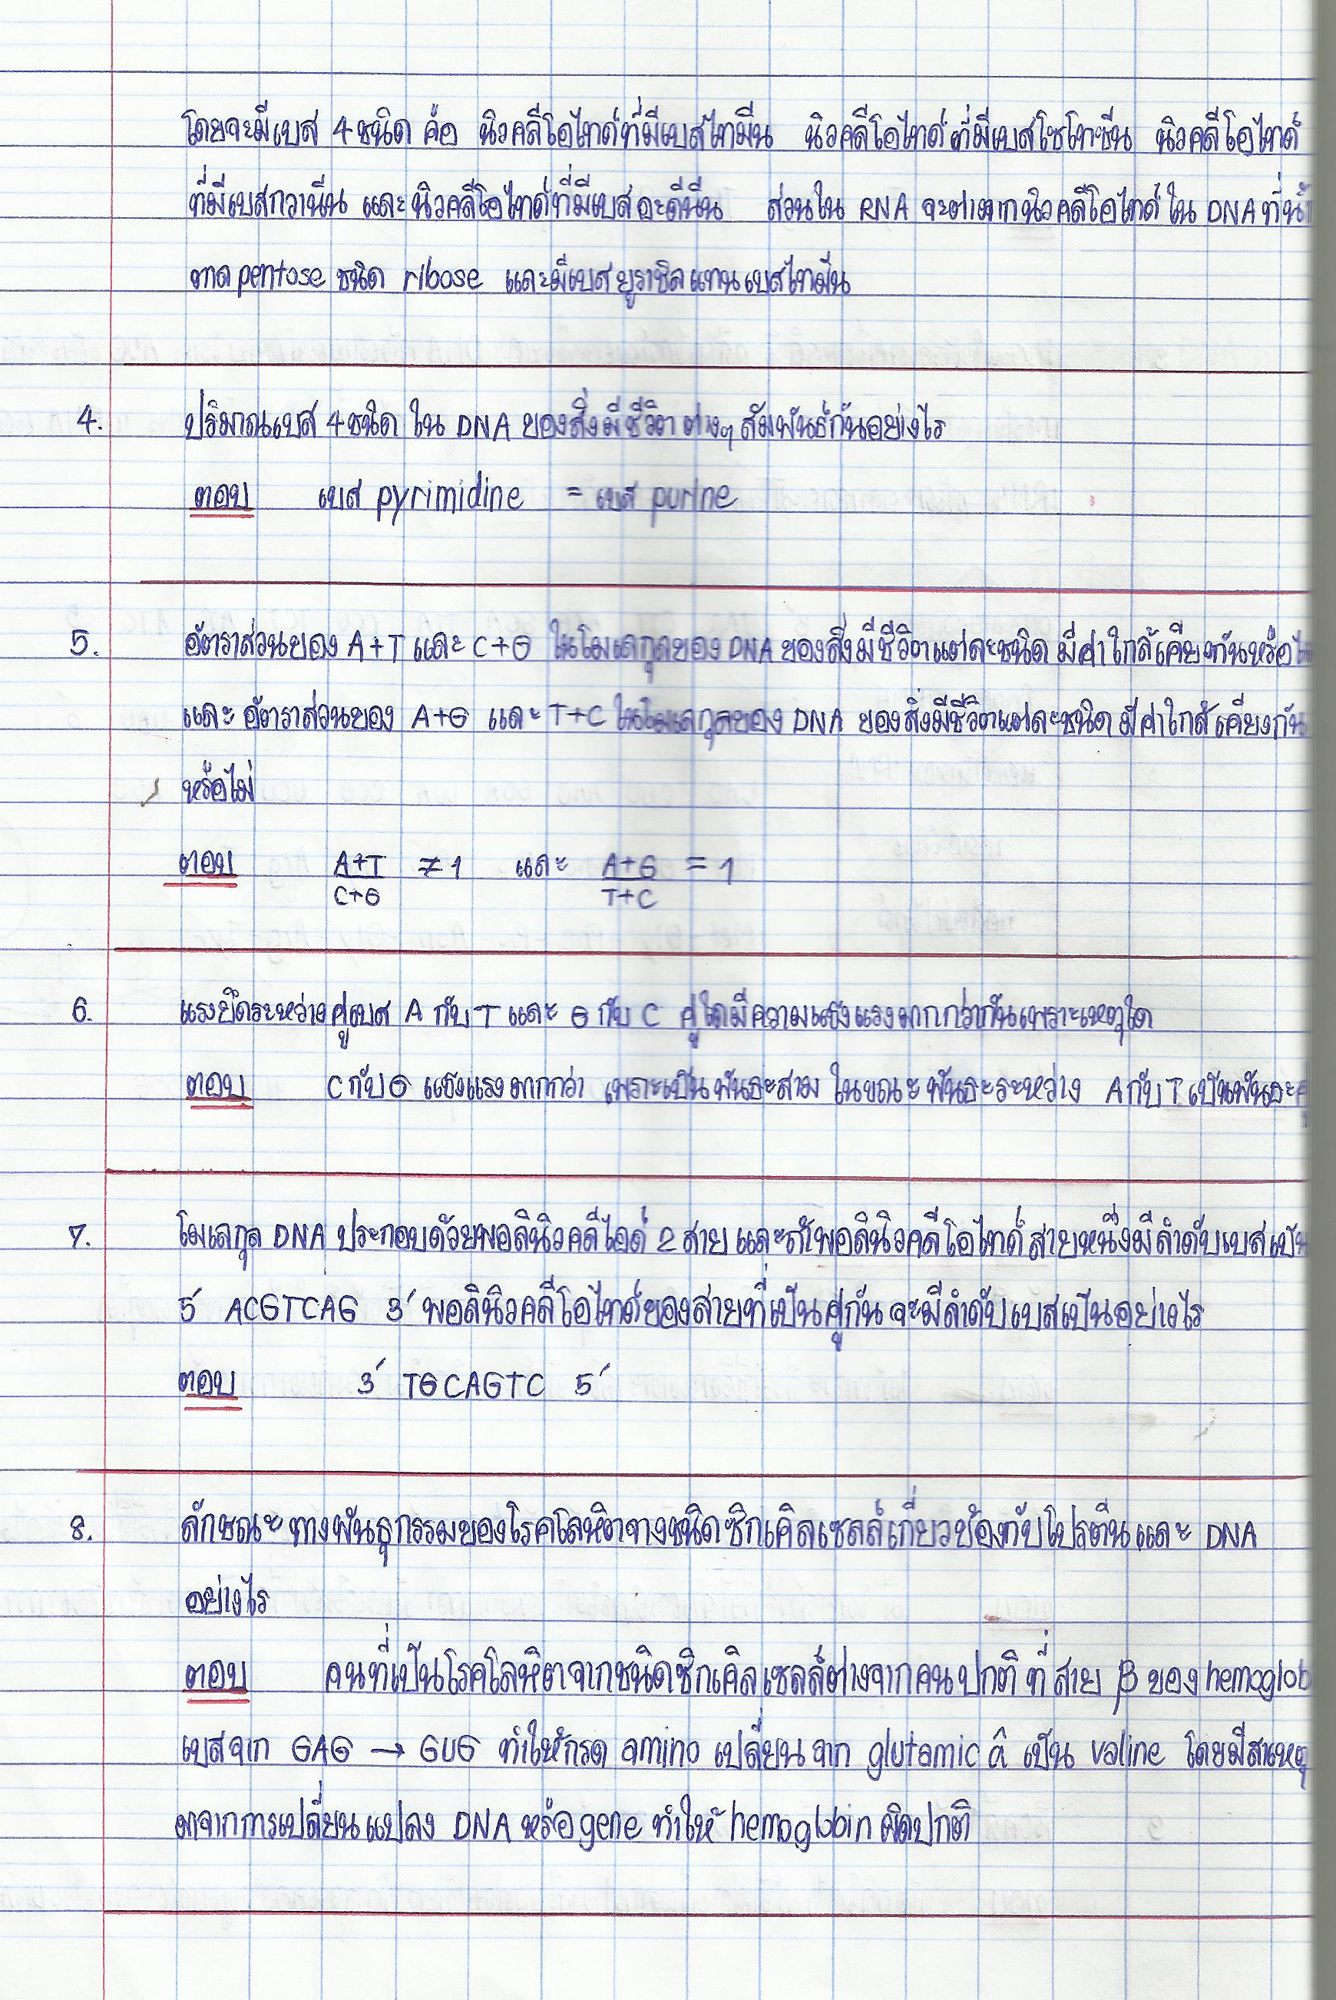 โดยจะมีเบส 4 ชนิด คือ นิวคลีโอไทด์ที่มีเบสไทมีน นิวคลีโอไทด์ที่มีเบสไซโทซีน นิวคลีโอไทด์
ที่มีเบสกวานีน และนิวคลีโอไทด์ที่มีเบสอะดีนีน ส่วนใน RNA จะต่างจากนิวคลีโอไทด์ใน DNA ที่น้ำ
ตาล pentose ชนิด ribose และมีเบสยูราซิลแทนเบสไทมีน
4. ปริมาณเบส 4 ชนิด ใน DNA ของสิ่งมีชีวิตต่างๆ สัมพันธ์กันอย่างไร
ตอบ เบส pyrimidine = เบส purine
5. อัตราส่วนของ A+T และ C+G ในโมเลกุลของ DNA ของสิ่งมีชีวิตแต่ละชนิด มีค่าใกล้เคียงกันหรือ
และ อัตราส่วนของ A+G และ T+C ในโมเลกุลของ DNA ของสิ่งมีชีวิตแต่ละชนิด มีค่าใกล้เคียงกัน
หรือไม่
ตอบ A+T/C+G ≠ 1 และ A+G/T+C = 1
6. แรงยึดระหว่างคู่เบส A กับ T และ G กับ C คู่ใดมีความแข็งแรงมากกว่ากันเพราะเหตุใด
ตอบ C กับ G แข็งแรงมากกว่า เพราะเป็นพันธะสาม ในขณะพันธะระหว่าง A กับ T เป็นพันธะ
7. โมเลกุล DNA ประกอบด้วยพอลินิวคลีไอด์ 2 สาย และถ้าพอลินิวคลีโอไทด์สายหนึ่งมีลำดับเบสเป็น
5′ ACGTCAG 3′ พอลินิวคลีโอไทด์ของสายที่เป็นคู่กัน จะมีลำดับเบสเป็นอย่างไร
ตอบ 3′ TGCAGTC 5′
8. ลักษณะทางพันธุกรรมของโรคโลหิตจางชนิดซิกเคิลเซลล์เกี่ยวข้องกับโปรตีนและ DNA
อย่างไร
ตอบ คนที่เป็นโรคโลหิตจากชนิดซิกเคิลเซลล์ต่างจากคนปกติ ที่สาย β ของ hemoglob
เบสจาก GAG → GUG ทำให้กรด amino เปลี่ยนจาก glutamic a เป็น valine โดยมีสาเหตุ
มาจากการเปลี่ยนแปลง DNA หรือ gene ทำให้ hemoglobin ผิดปกติ